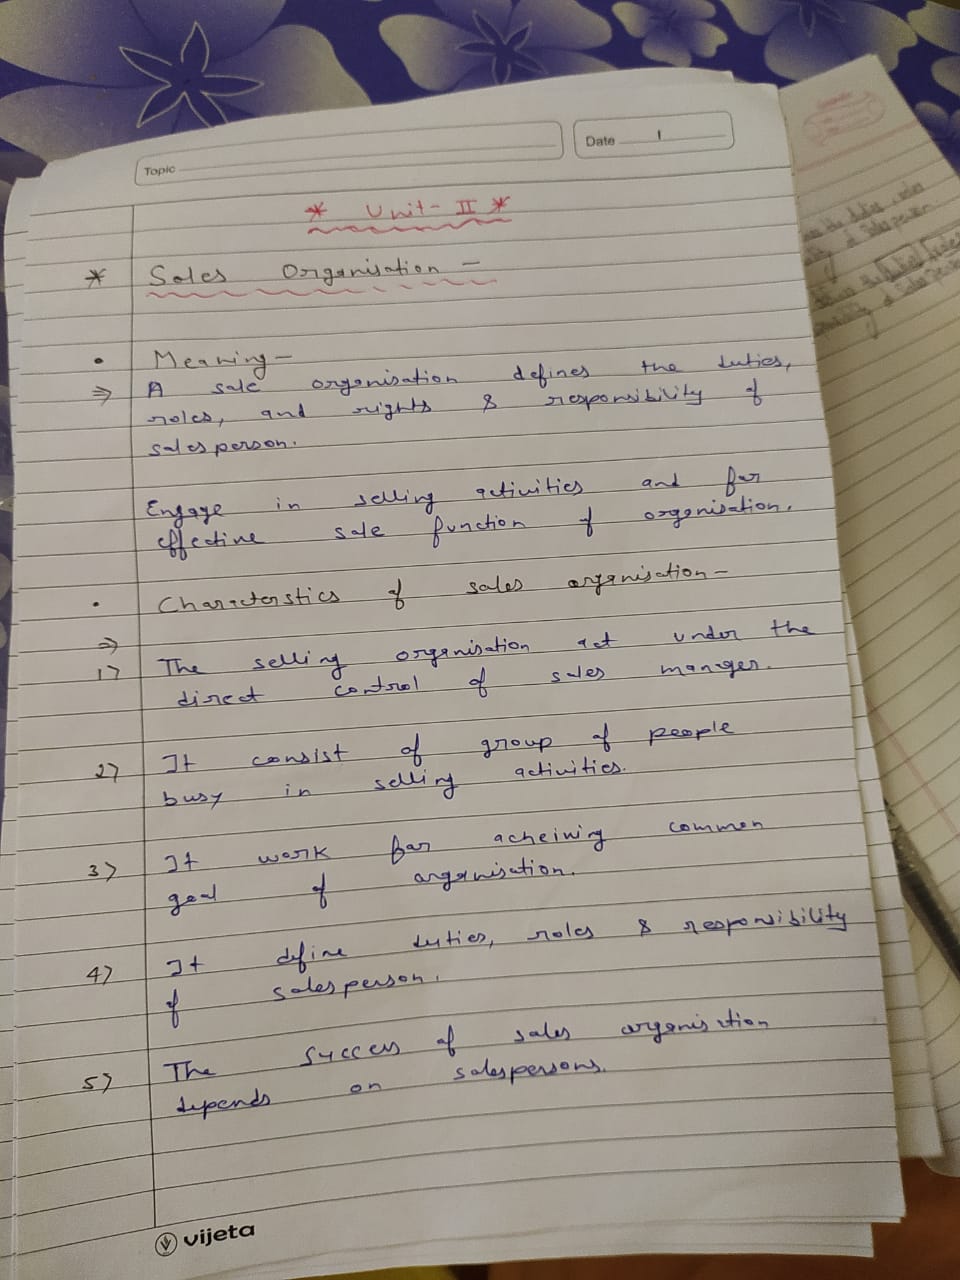 Topic
Date
* Unit - II *
* Sales Organisation -
• Meaning -
⇒ A sale organisation defines the duties,
roles, and rights & responsibility of
salesperson.
Engage in selling activities and for
effective sale function of organisation.
• Characterstics of sales organisation -
⇒
1) The selling organisation act under the
direct control of sales manager.
2) It consist of group of people
busy in selling activities.
3) It work for acheiving common
goal of organisation.
4) It define duties, roles & responsibility
of salesperson.
5) The success of sales organisation
depends on salespersons.
vijeta